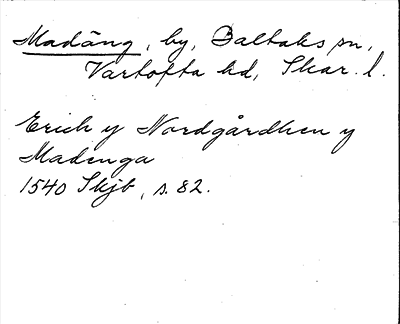 Madäng, by, Baltaks sn,
Vartofta hd, Skar. l.
Erich y Nordgårdhen y
Madenga
1540 Skjb, s. 82.